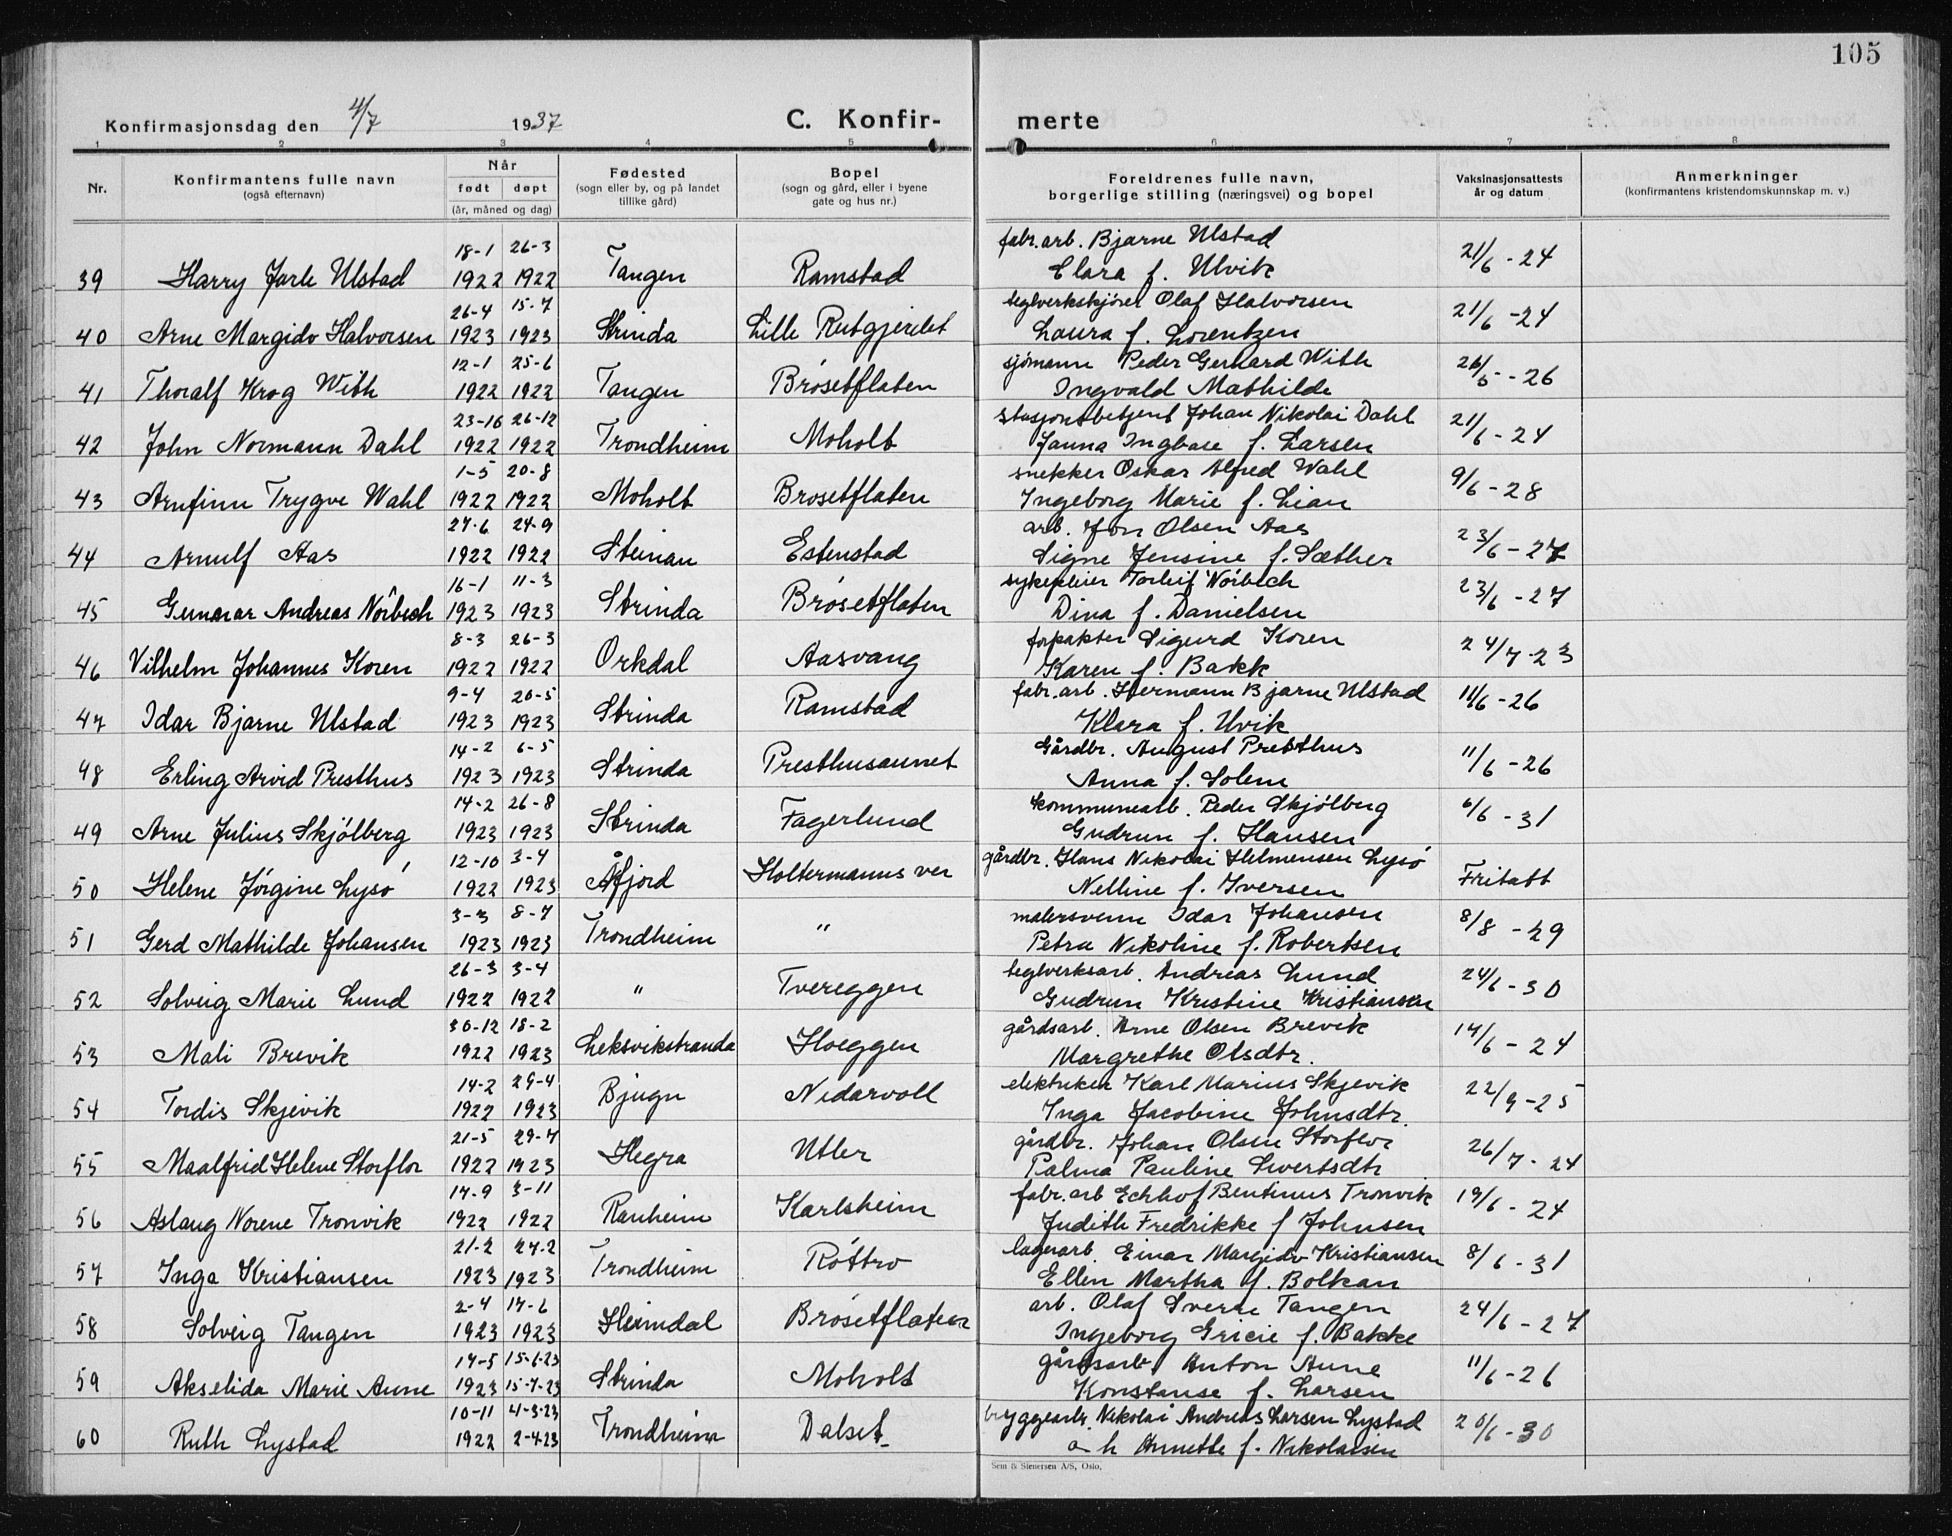 105
Konfirmasjonsdag den 4/7 1937 C. Konfir- merte
1 2 3 4 5 6 7 8
Nr. Konfirmantens fulle navn (også efternavn) Når født døpt (år, måned og dag) Fødested (sogn eller by, og på landet tillike gård) Bopel (sogn og gård, eller i byene gate og hus nr.) Foreldrenes fulle navn, borgerlige stilling (næringsvei) og bopel Vaksinasjonsattests år og datum Anmerkninger (konfirmantens kristendomskunnskap m. v.)
18-1 26-3 fabr.arb. Bjarne Ulstad
39 Harry Jarle Ulstad 1922 1922 Tangen Ramstad Clara f. Ulvik 21/6-24
26-4 15-7 teglverkskjører Olaf Halvorsen
40 Arne Margido Halvorsen 1923 1923 Strinda Lille Rotgjerdet Laura f. Lorentzen 21/6-24
12-1 25-6 sjømann Peder Gerhard With
41 Thoralf Krog With 1922 1922 Tangen Brøsetflaten Ingvald Mathilde 26/5-26
23-10 26-12 stasjonsbetjent Johan Nikolai Dahl
42 John Normann Dahl 1922 1922 Trondheim Moholt Janna f. Larsen 21/6-24
1-5 20-8 snekker Oskar Alfred Wahl
43 Arnfinn Trygve Wahl 1922 1922 Moholt Brosetflaten Ingeborg Marie f. Lian 9/6-28
27-6 24-9 arb. Jon Olsen Aas
44 Arnulf Aas 1922 1922 Steinan Estenstad Signe Jensine f. Sæther 23/6-27
16-1 11-3 sykepleier Torleif Nörbech
45 Gunnar Andreas Nörbech 1923 1923 Strinda Brøsetflaten Dina f. Danielsen 23/6-27
8-3 26-3 forpakter Sigurd Koren
46 Vilhelm Johannes Koren 1922 1922 Orkdal Aasvang Karen f. Bakk 24/7-23
9-4 20-5 fabr.arb. Hermann Bjarne Ulstad
47 Idar Bjarne Ulstad 1923 1923 Strinda Ramstad Klara f. Ulvik 11/6-26
14-2 6-5 Gårdbr. August Presthus
48 Erling Arvid Presthus 1923 1923 Strinda Presthusaunet Anna f. Solem 11/6-26
14-2 26-8 kommunearb. Peder Skjölberg
49 Arne Julius Skjölberg 1923 1923 Strinda Fagerlund Gudrun f. Hansen 6/6-31
12-10 3-4 gårdbr. Hans Nikolai Helmensen Lysö
50 Helene Jörgine Lysö 1922 1923 Åfjord Holtermanns ver Nelline f. Iversen Fritatt
3-3 8-7 malersvenn Idar Johansen
51 Gerd Mathilde Johansen 1923 1923 Trondheim " Petra Nikoline f. Robertsen 8/8-29
26-3 3-4 teglverksarb. Andreas Lund
52 Solveig Marie Lund 1922 1922 " Tvereggen Gudrun Kristine Kristiansen 24/6-30
30-12 18-2 gårdsarb. Arne Olsen Brevik
53 Mali Brevik 1922 1923 Leksvikstranda Hoeggen Margrethe Olsdtr. 14/6-24
14-2 29-4 elektriker Karl Marius Skjevik
54 Tordis Skjevik 1922 1923 Bjugn Nidarvoll Inga Jacobine Johnsdtr. 22/9-25
21-5 29-7 gårdbr. Johan Olsen Storflor
55 Maalfrid Helene Storflor 1922 1923 Hegra Utler Palma Pauline Sivertsdtr 26/7-24
14-9 3-11 fabr.arb Echhof Bentinus Tronvik
56 Aslaug Norene Tronvik 1922 1922 Ranheim Karlsheim Judith Fredrikke f Johnsen 19/6-24
21-2 24-2 lagerarb. Einar Margido Kristiansen
57 Inga Kristiansen 1923 1923 Trondheim Rottro Ellin Martha f. Bolkan 8/6-31
2-4 14-6 arb. Olaf Sverre Tangen
58 Solveig Tangen 1923 1923 Heimdal Brøsetflaten Ingeborg f. Bakke 24/6-27
14-5 15-6-23 gårdsarb. Anton Aune
59 Akselida Marie Aune 1923 15-7-23 Strinda Moholt Konstanse f. Larsen 11/6-26
10-11 4-3-23 bryggearb. Nikolai Andreas Larsen Lystad
60 Ruth Lystad 1922 2-4-23 Trondheim Dalset o h Annette f. Nikolaisen 20/6-30
Sem & Stenersen A/S, Oslo.